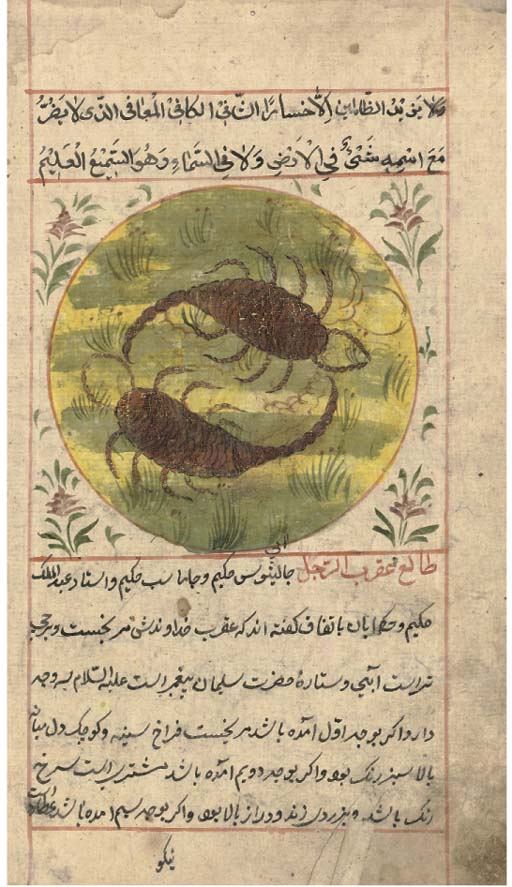 ولا یزید الظالمین إلّا خسارًا الشافی الکافی المعافی الذی لا یضرّ
مَعَ اسمِهِ شَئیٌ فی الارض ولا فی السّماء وهو السّمیع العلیم
طالع عقرب الرّجل جالینوس حکیم وجاماسب حکیم واستاد عبدالملک
ابی
حکیم وحکمایان باتفاق گفته اند که عقرب خداوندش مریخست وبرج
است ابی وستارهٔ حضرت سلمان پیغمبر است علیه السّلام سه وجه
دارد اگر بوجه اوّل آمده باشد مریخست فراخ سینه وکوچک دل میانه
بالا سبز رنگ بود واگر بوجه دویم آمده باشد مشتری است سرخ
رنگ باشد و بزردی زند ودراز بالا بود واگر بوجه سیم آمده باشد عطارد است
نیکو